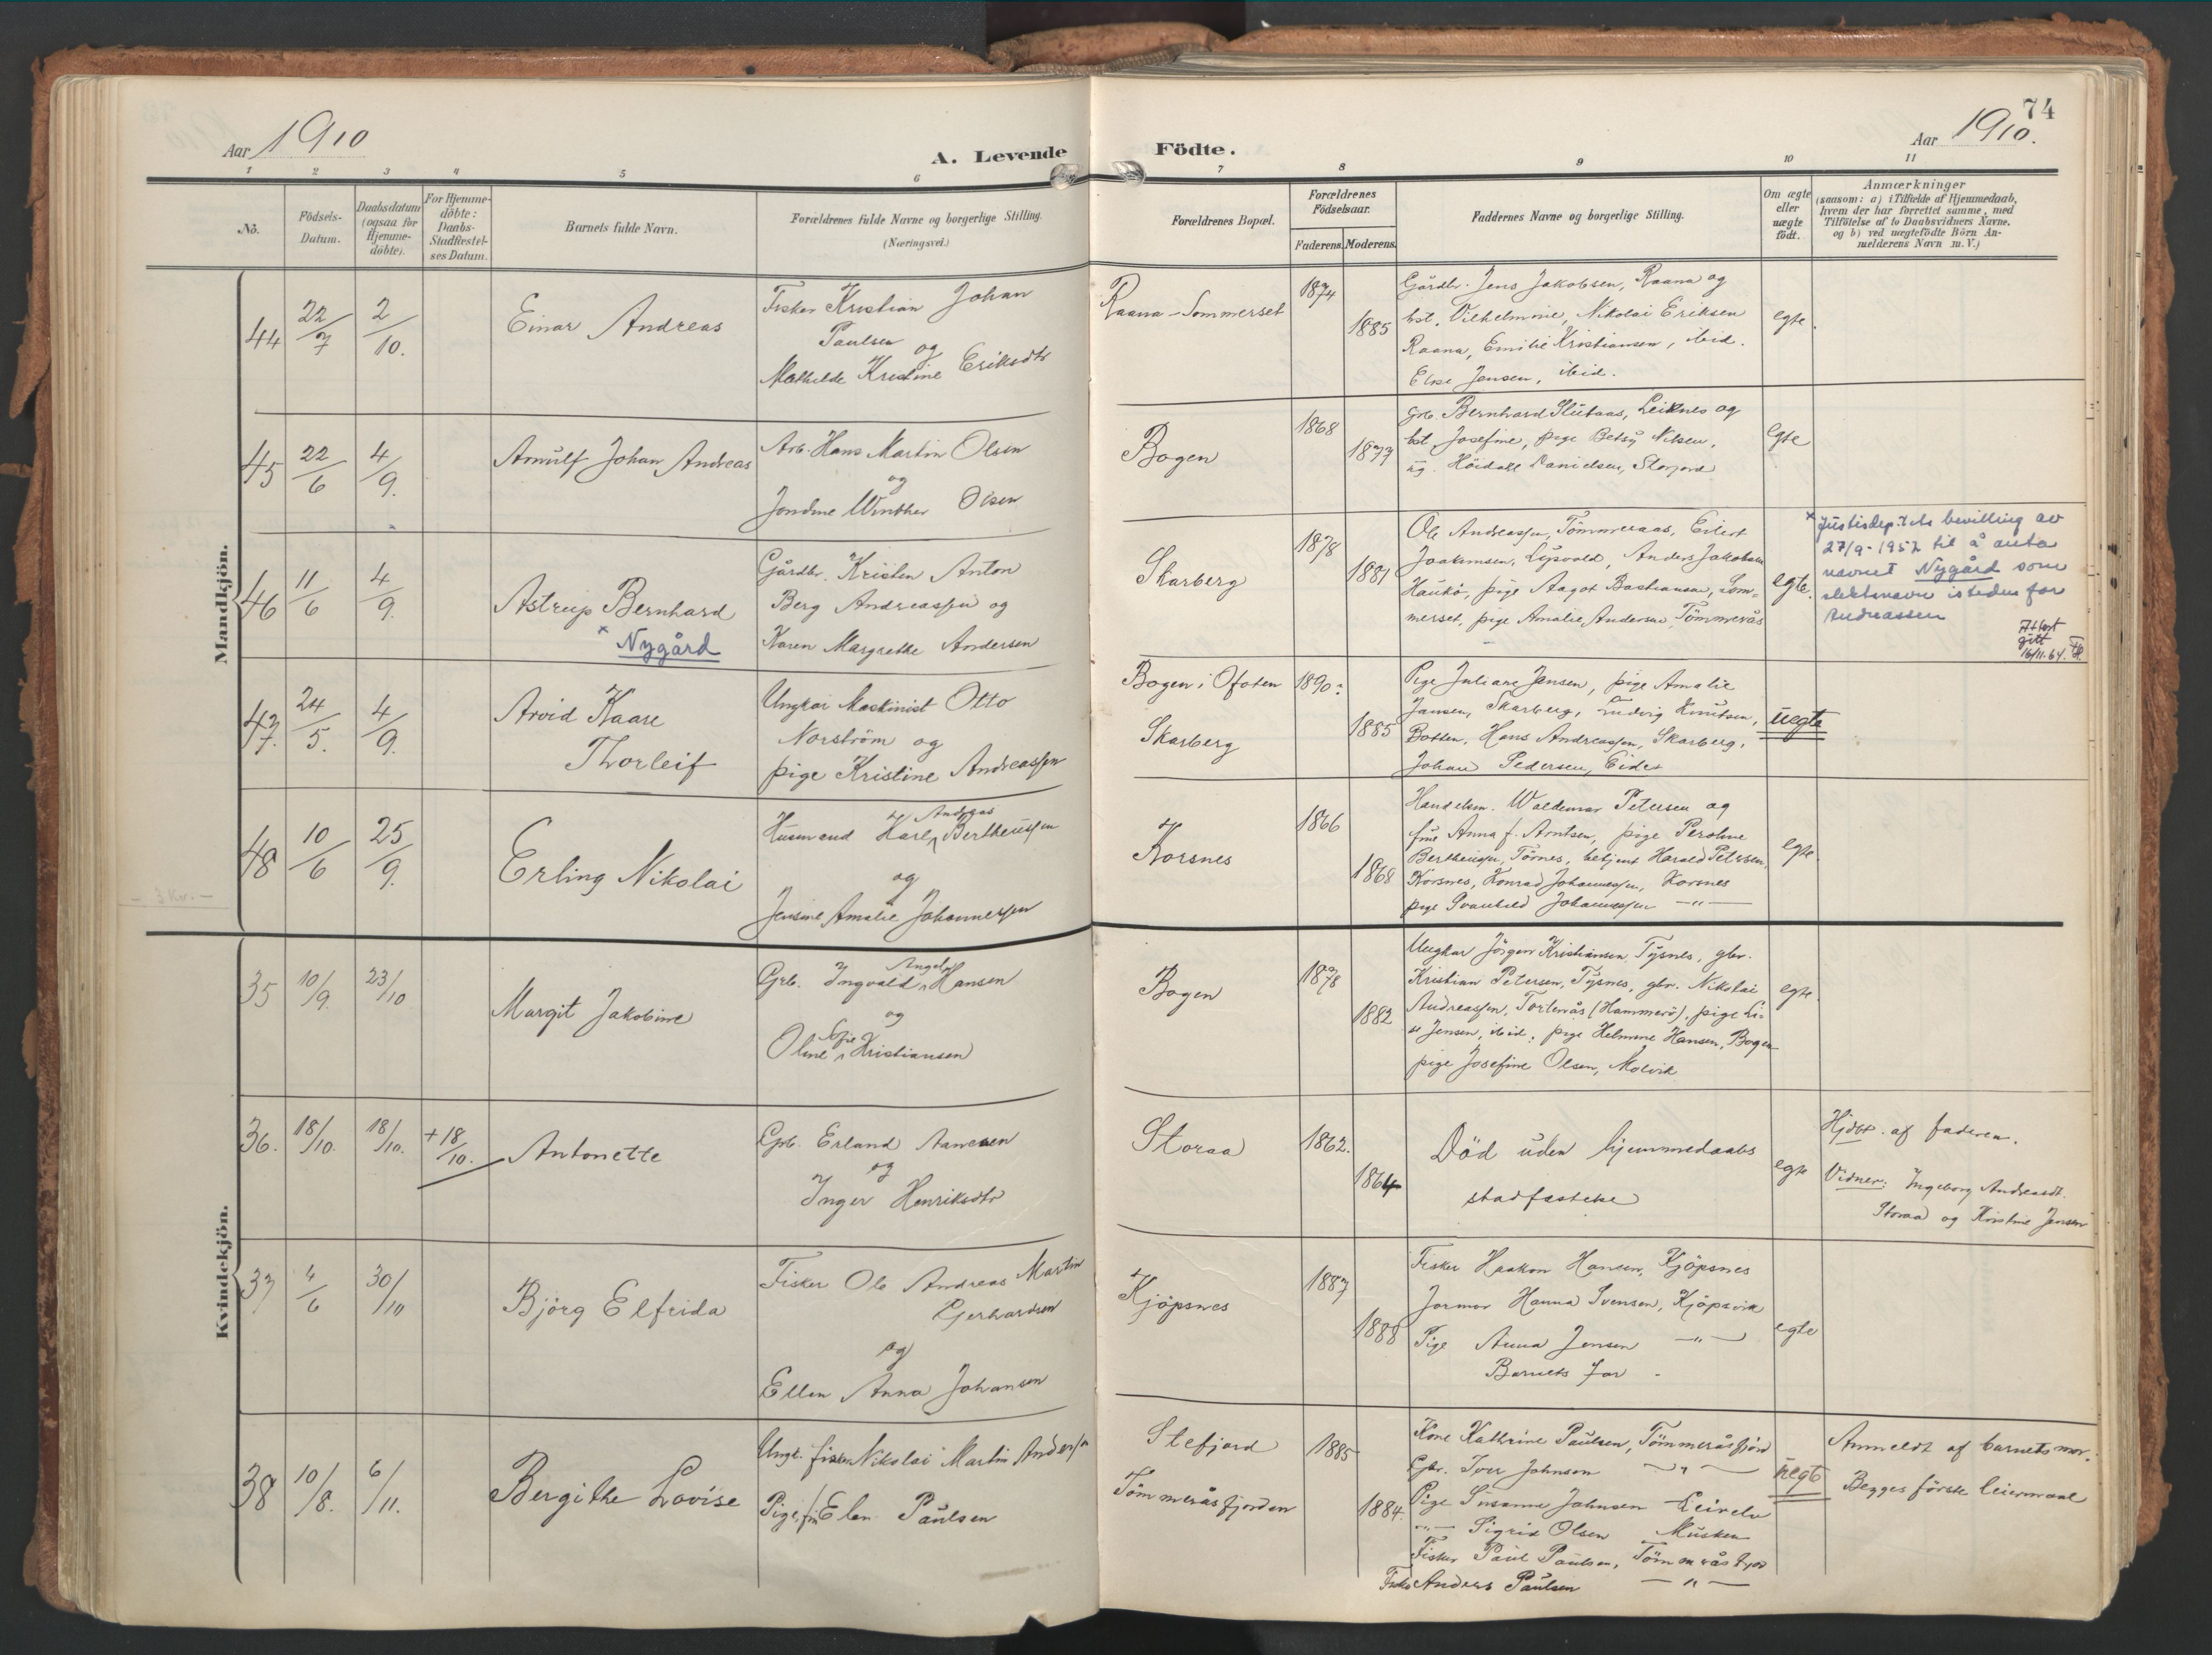 74
Aar 1910
A. Levende Födte.
Aar 1910.
1 2 3 4 5 6 7 8 9 10 11
No.
Födsels-
Datum.
Daabsdatum
(ogsaa for
Hjemme-
döbte).
For Hjemme-
döbte:
Daabs-
Stadfæstel-
ses Datum.
Barnets fulde Navn.
Forældrenes fulde Navne og borgerlige Stilling.
(Næringsvei.)
Forældrenes Bopæl.
Forældrenes
Födselsaar.
Faderens. Moderens.
Faddernes Navne og borgerlige Stilling.
Om ægte
eller
uægte
födt.
Anmærkninger
(saasom: a) i Tilfælde af Hjemmedaab,
hvem der har forrettet samme, med
Tilföielse af to Daabsvidners Navne.
og b) ved uægtefödte Börn An-
melderens Navn m. V.)
Mandkjön.
44
22/7
2/10.
Einar Andreas
Fisker Kristian Johan
Paulsen
og
Mathilde Kristine Eriksdtr
Raana - Sommerset
1874
1885
Gårdbr. Jens Jakobsen, Raana og
hst. Vilhelmine, Nikolai Eriksen
Raana, Emilie Kristiansen, ibid.
Else Jensen, ibid.
egte.
45
22/6
4/9.
Arnulf Johan Andreas
Arb. Hans Martin Olsen
og
Jondine Winther Olsen
Bogen
1868
1877
Grb. Bernhard Slutaas, Leiknes og
hst Josefine, pige Betsy Nilsen,
ug. Höidall Danielsen, Storjord
egte
46
11/6
4/9.
Astrup Bernhard
× Nygård
Gårdbr. Kristen Anton
Berg Andreassen og
Karen Margrethe Andersen
Skarberg
1878
1881
Ole Andreassen, Tömmeraas, Eilert
Joakimsen, Lysvold, Anders Jakobsen
Haukö, pige Aagot Bastiansen, Som-
merset, pige Amalie Andersen, Tömmerås
egte.
× Justisdep.tets bevilling av
27/9-1952 til å anta
navnet Nygård som
slektsnavn isteden for
Andreassen
Attest
gitt
16/11.64.
47.
24/5.
4/9.
Arvid Kaare
Thorleif
Ungkar Maskinist Otto
Norström og
pige Kristine Andreassen
Bogen i Ofoten
Skarberg
1890:
1885
Pige Juliane Jensen, pige Amalie
Jansen, Skarberg, Ludvig Knutsen,
Botten, Hans Andreassen, Skarberg,
Johan Pedersen, Eidet
uegte
48
10/6
25/9.
Erling Nikolai
Husmand Karl Andreas Bertheussen
og
Jensine Amalie Johannessen
Korsnes
1866
1868
Handelsm. Waldemar Petersen og
frue Anna f. Arntsen, pige Peroline
Bertheussen, Törnes, betjent Harald Petersen,
Korsnes, Konrad Johannessen, Korsnes
pige Svanhild Johannessen —"—
egte.
- 3 Kr. -
Kvindekjön.
35
10/9.
23/10
Margit Jakobine
Grb. Ingvald Angel Hansen
og
Oline Sofie Kristiansen
Bogen
1878
1882
Ungkar Jörgen Kristiansen, Tysnes, gbr.
Kristian Petersen, Tysnes, gbr. Nikolai
Andreassen, Torlernås (Hammerö), pige Li-
se Jensen, ibid., pige Helmine Hansen, Bogen
pige Josefine Olsen, Molvik
egte.
36.
18/10.
18/10.
+ 18/10.
Antonette
Grb. Erland Aanesen
og
Inger Henriksdtr
Storaa
1862.
1864
Död uden hjemmedaabs
stadfæstelse
egte
Hjdbt. af faderen.
Vidner: Ingeborg Andreasdt.
Storaa og Kristine Jensen
37
4/6
30/10
Björg Elfrida
Fisker Ole Andreas Martin
Gerhardsen
og
Ellen Anna Johansen
Kjöpsnes
1887
1888
Fisker Haakon Hansen, Kjöpsnes
Jormor Hanna Svensen, Kjöpsvik
Pige Anna Jensen —"—
Barnets far -
egte
38
10/8.
6/11.
Bergithe Lovise
Ungk. fisker Nikolai Martin Andersen
Pige Elen Paulsen
Stefjord
Tömmeråsfjorden
1885
1884.
Kone Kathrine Paulsen, Tömmeråsfjord
Gbr. Iver Johnsen —"—
Pige Susanne Johnsen Leirelv
—"— Sigrid Olsen Musken
Fisker Paul Paulsen, Tömmeråsfjord
Fisker Anders Paulsen —"—
uegte
Anmeldt af barnets mor.
Begges förste leiermaal